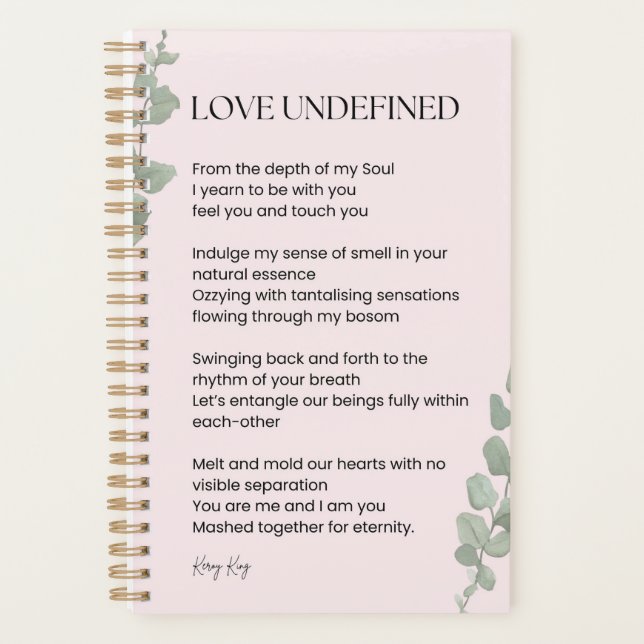 LOVE UNDEFINED
From the depth of my Soul
I yearn to be with you
feel you and touch you
Indulge my sense of smell in your
natural essence
Ozzying with tantalising sensations
flowing through my bosom
Swinging back and forth to the
rhythm of your breath
Let's entangle our beings fully within
each-other
Melt and mold our hearts with no
visible separation
You are me and I am you
Mashed together for eternity.
Keroy King